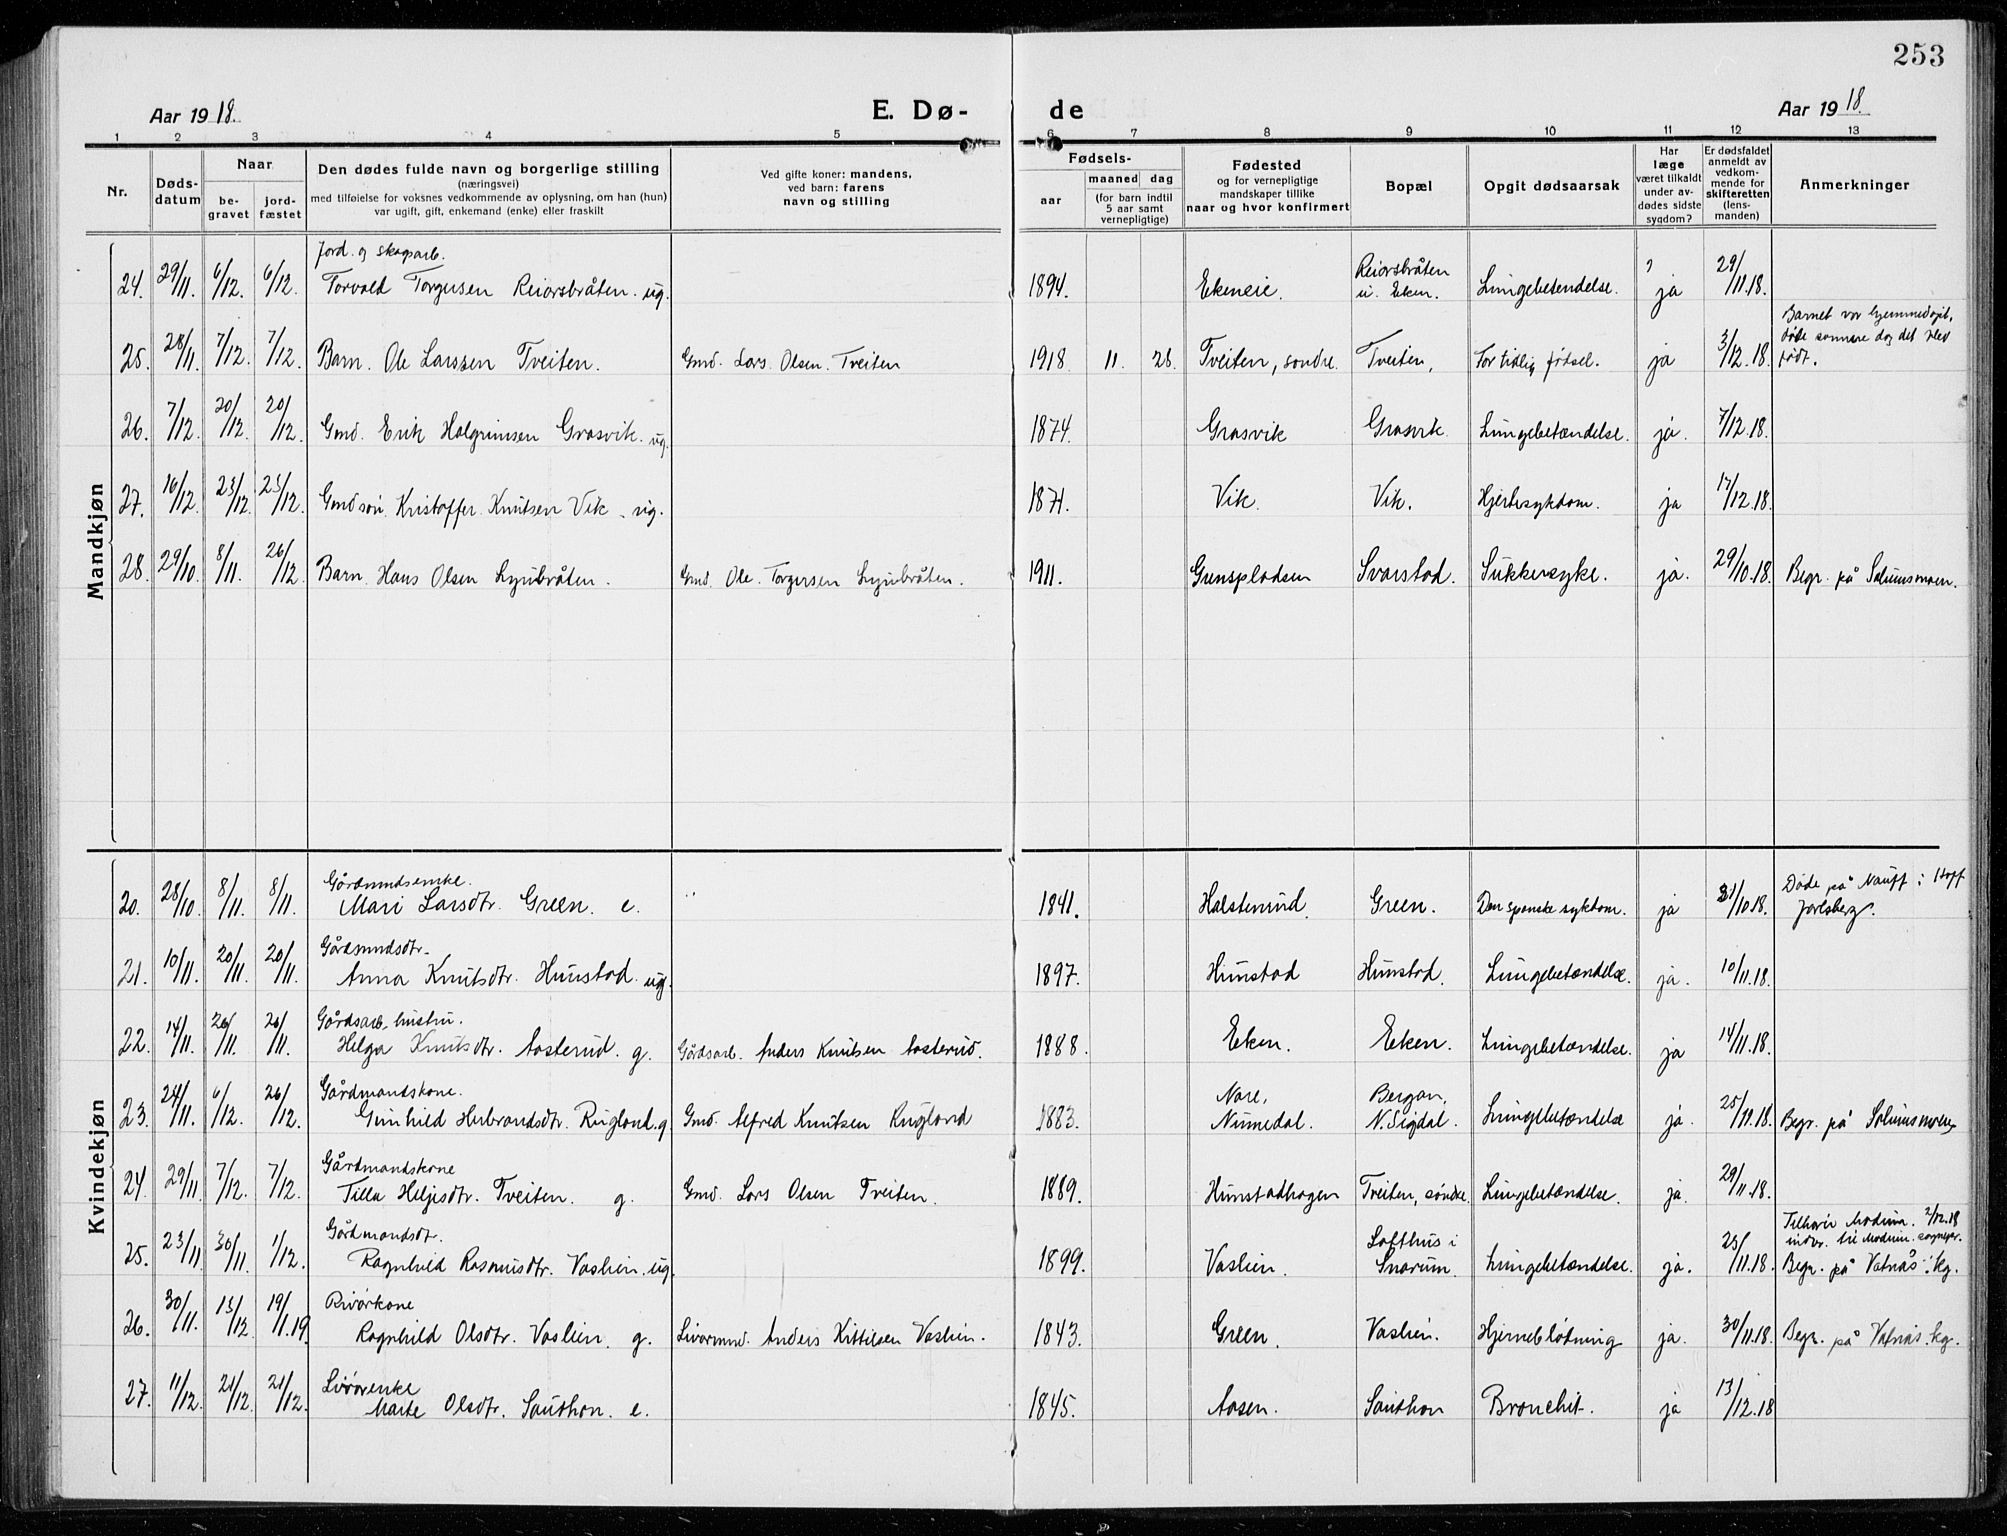 253
Aar 1918.
E. Dø-
de
Aar 1918.
1 2 3 4 5 6 7 8 9 10 11 12 13
Nr.
Døds-
datum
Naar
be-
gravet
jord-
fæstet
Den dødes fulde navn og borgerlige stilling
(næringsvei)
med tilføielse for voksnes vedkommende av oplysning, om han (hun)
var ugift, gift, enkemand (enke) eller fraskilt
Ved gifte koner: mandens,
ved barn: farens
navn og stilling
Fødsels-
aar
maaned dag
(for barn indtil
5 aar samt
vernepligtige)
Fødested
og for vernepligtige
mandskaper tillike
naar og hvor konfirmert
Bopæl
Opgit dødsaarsak
Har
læge
været tilkaldt
under av-
dødes sidste
sygdom?
Er dødsfaldet
anmeldt av
vedkom-
mende for
skifteretten
(lens-
manden)
Anmerkninger
Mandkjøn
Jord. og skogarb.
24. 29/11. 6/12. 6/12. Torvald Torgersen Reiorsbråten. ug. 1894. Ekeneie. Reiorsbråten u. Eken. Lungebetendelse. ? ja 29/11.18.
25. 28/11. 7/12. 7/12. Barn. Ole Larssen Tveiten. Gmd. Lars Olsen Tveiten 1918 11. 28. Tveiten, søndre. Tveiten, For tidlig fødsel. ja 3/12.18. Barnet var hjemmedøpt, døde samme dag det blev født.
26. 7/12. 20/12. 20/12. Gmd. Erik Halgrimsen Grasvik. ug. 1874. Grasvik Grasvik Lungebetændelse. ja. 7/12.18.
27. 16/12. 23/12. 23/12. Gmdsøn Kristoffer Knutsen Vik. ug. 1871. Vik. Vik. Hjertesykdom. ja 17/12.18.
28. 29/10. 8/11. 26/12. Barn Hans Olsen Lyubråten. Gmd. Ole Torgersen Lyubråten. 1911. Grenspladsen Svarstad. Sukkersyke. ja. 29/10.18. Begr. på Solumsmoen.
Kvindekjøn
Gårdmndsenke.
20. 28/10. 8/11. 8/11. Mari Larsdtr. Green. e. 1841. Halstenrud. Green. Den spanske sykdom. ja 31/10.18. Døde på Nauff i Hoff Jarlsberg.
Gårdmndsdtr.
21. 10/11. 20/11. 20/11. Anna Knutsdtr. Hunstad. ug. 1897. Hunstad Hunstad. Lungebetændelse. ja. 10/11.18.
Gårdsarb. hustru.
22. 14/11. 26/11. 26/11. Helga Knutsdtr. Aasterud. g. Gårdsarb. Anders Knutsen Aasterud. 1888. Eken. Eken. Lungebetændelse. ja 14/11.18.
Gårdmandskone.
23. 24/11. 6/12. 26/12. Gunhild Herbrandsdtr. Rugland. g Gmd. Alfred Knutsen Rugland 1883. Nore, Numedal. Bergan, N. Sigdal. Lungebetændelse ja. 25/11.18. Begr. på Solumsmoen
Gårdmandskone
24. 29/11. 7/12. 7/12. Tilla Heljesdtr. Tveiten. g. Gmd. Lars Olsen Tveiten. 1889. Hunstadhagen Tveiten, søndre. Lungebetændelse. ja. 29/11.18.
Gårdmandsdt.
25. 23/11 30/11. 1/12. Ragnhild Rasmusdtr. Vaslien. ug. 1899. Vaslien. Lofthus i Snarum. Lungebetændelse. ja. 25/11.18. Tilhører Modum. 2/12.18 indber. til Modum sognepr. Begr. på Vatnås kg.
26. 30/11. 13/12 19/1.19. Ragnhild Olsdtr. Vaslien. g. Livørmnd. Anders Kittilsen Vaslien. 1843. Green. Vaslien. Hjerneblødning ja. 30/11.18. Begr. på Vatnås kg.
Livørenke
27. 11/12. 21/12. 21/12. Marte Olsdtr. Sandhon. e. 1845. Aasen. Sandhon Bronchit. ja 13/12.18